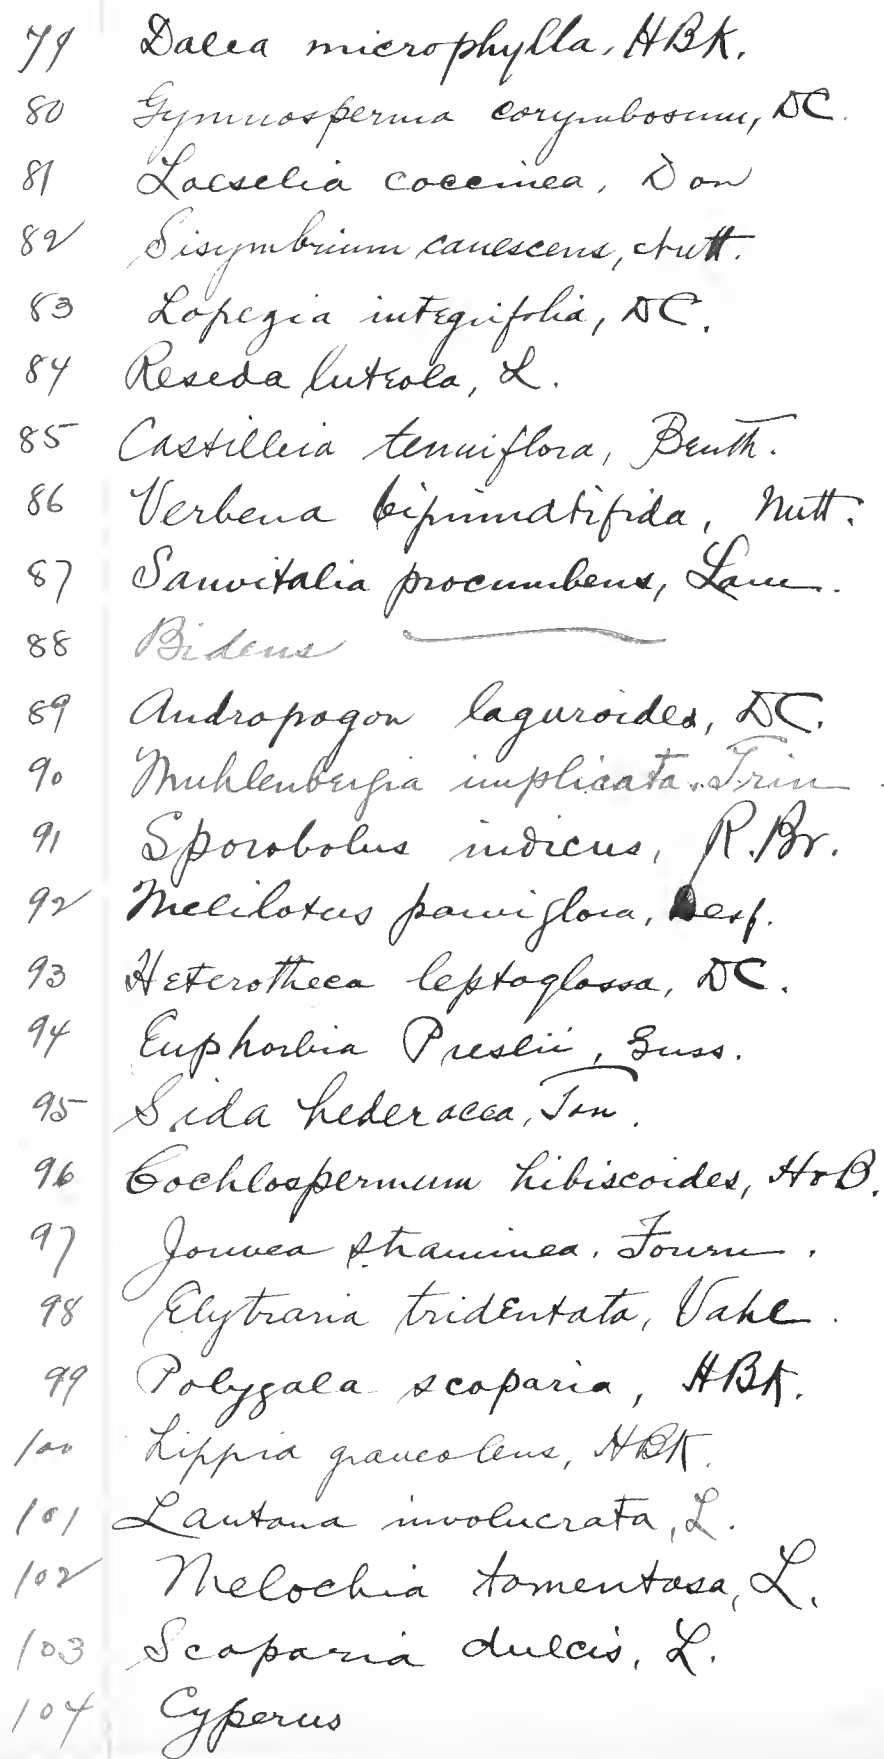 79 Dalea microphylla, HBK.
80 Gymnosperma corymbosum, DC.
81 Loeselia coccinea, Don
82 Sisymbrium canescens, Nutt.
83 Lopezia integrifolia, DC.
84 Reseda luteola, L.
85 Castilleia tenuiflora, Benth.
86 Verbena bipinnatifida, Nutt.
87 Sanvitalia procumbens, Lam.
88 Bidens
89 Andropogon laguroides, DC.
90 Muhlenbergia implicata. Trin
91 Sporobolus indicus, R. Br.
92 Melilotus parviflora, Desf.
93 Heterotheca leptoglossa, DC.
94 Euphorbia Preslii, Guss.
95 Sida hederacea, Torr.
96 Cochlospermum hibiscoides, H&B.
97 Jouvea straminea. Fourn.
98 Elytraria tridentata, Vahl.
99 Polygala scoparia, HBK.
100 Lippia graveolens, HBK.
101 Lantana involucrata, L.
102 Melochia tomentosa, L.
103 Scoparia dulcis, L.
104 Cyperus